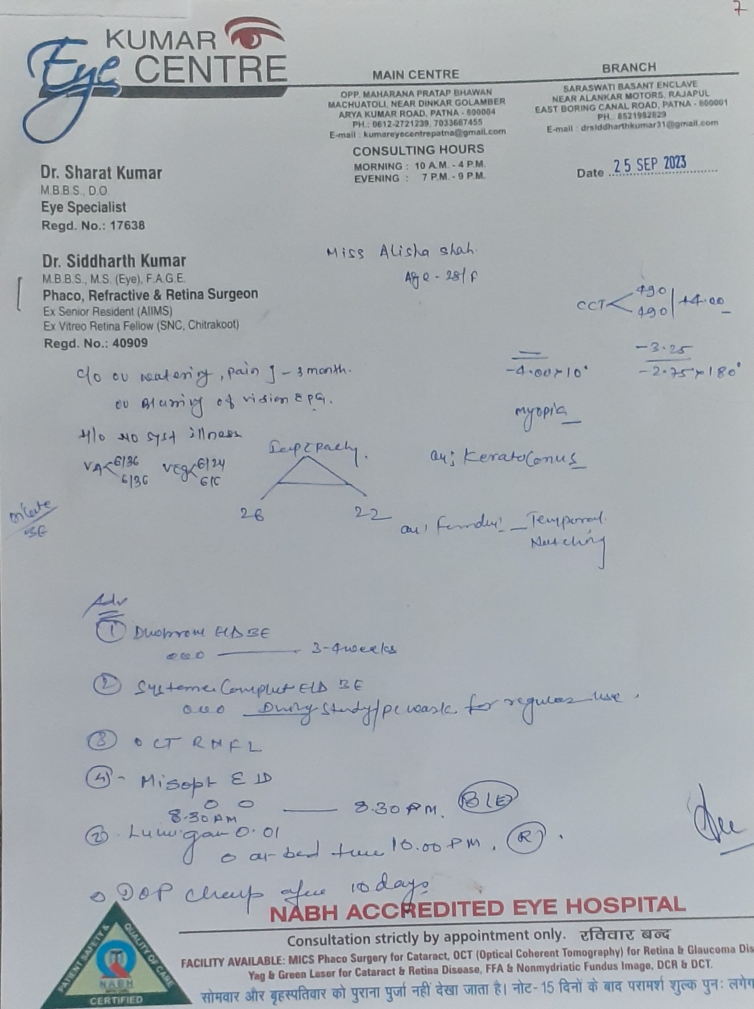 7
KUMAR
Eye CENTRE
MAIN CENTRE
OPP. MAHARANA PRATAP BHAWAN
MACHUATOLI, NEAR DINKAR GOLAMBER
ARYA KUMAR ROAD, PATNA - 800004
PH.: 0612-2721239, 7033687455
E-mail : kumareyecentrepatna@gmail.com
CONSULTING HOURS
MORNING : 10 A.M. - 4 P.M.
EVENING : 7 P.M. - 9 P.M.
BRANCH
SARASWATI BASANT ENCLAVE
NEAR ALANKAR MOTORS, RAJAPUL
EAST BORING CANAL ROAD, PATNA - 800001
PH. 8521982829
E-mail : drsiddharthkumar31@gmail.com
Date 25 SEP 2023
Dr. Sharat Kumar
M.B.B.S., D.O.
Eye Specialist
Regd. No.: 17638
Dr. Siddharth Kumar
M.B.B.S., M.S. (Eye), F.A.G.E.
Phaco, Refractive & Retina Surgeon
Ex Senior Resident (AIIMS)
Ex Vitreo Retina Fellow (SNC, Chitrakoot)
Regd. No.: 40909
Miss Alisha Shah
Age - 28/F
CCT < 490 490 +4.00
c/o OU watering, pain - 3 month.
OU Blurring of vision PG.
H/o NO syst illness
VA < 6/36 6/36 6/24
-4.00 x 10°
-3.25
-2.75 x 180°
myopia
OU; Keratoconus
26 22
OU; Temporal
Notching
BE
Adv
① E/D BE
3-4 weeks
② Systane Complet E/D BE
During study/ for regular use.
③ OCT RNFL
④ - Misopt E/D
8.30 AM 8.30 PM. BE
② Lumigan 0.01
at bed time 10.00 PM. R
10 days
NABH ACCREDITED EYE HOSPITAL
Consultation strictly by appointment only. रविवार बन्द
FACILITY AVAILABLE: MICS Phaco Surgery for Cataract, OCT (Optical Coherent Tomography) for Retina & Glaucoma Dis
Yag & Green Laser for Cataract & Retina Disease, FFA & Nonmydriatic Fundus Image, DCR & DCT.
सोमवार और बृहस्पतिवार को पुराना पुर्जा नहीं देखा जाता है। नोट- 15 दिनों के बाद परामर्श शुल्क पुनः लगेग
PATIENT SAFETY & QUALITY OF CARE
NABH
CERTIFIED